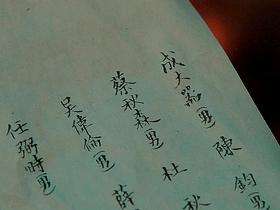 成大器(男) 陳鈞(男)
蔡秋森(男) 杜秋
吴偉倫(男) 薛
任弼時(男)